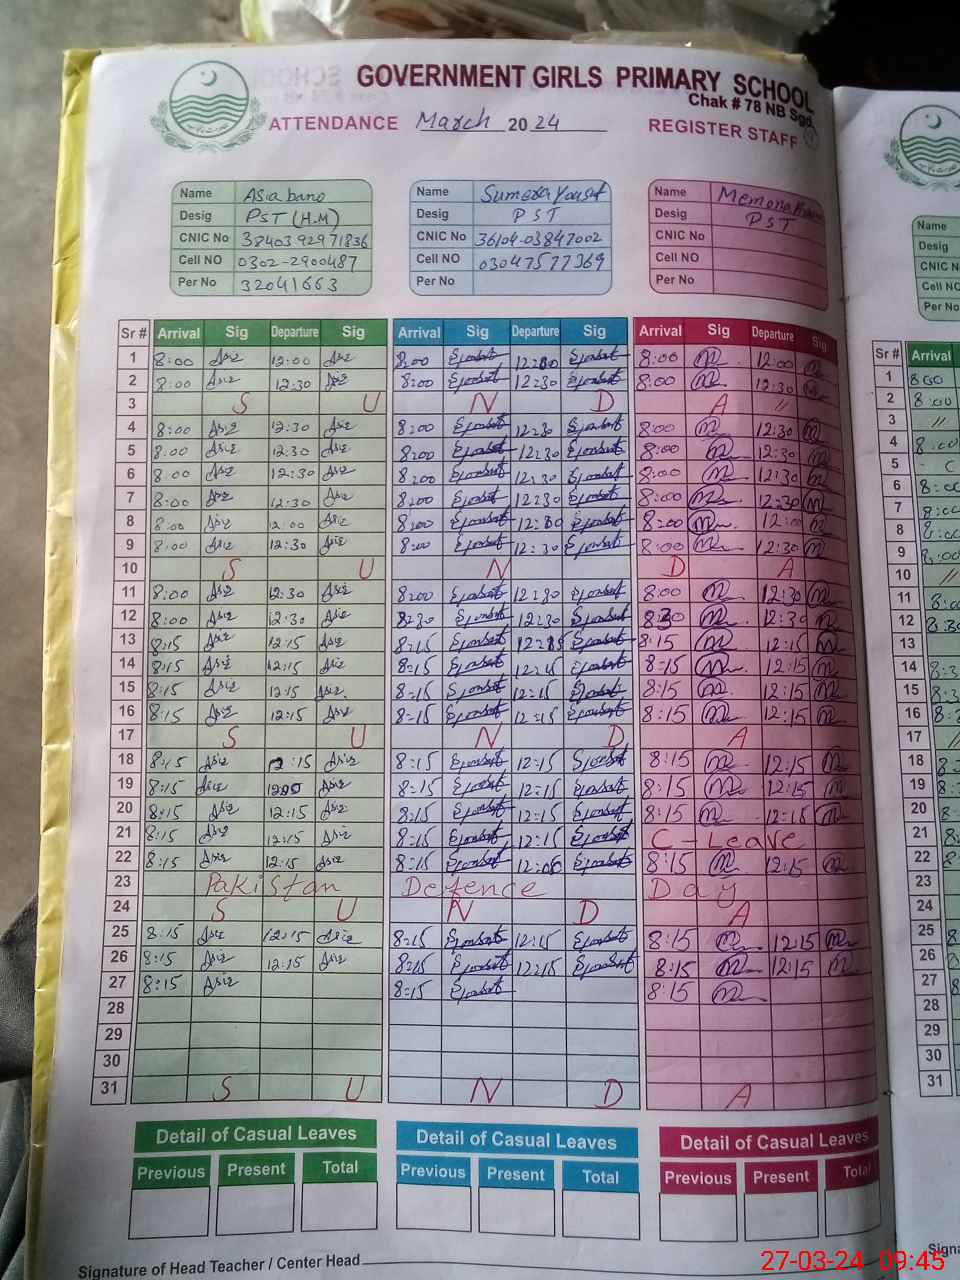 GOVERNMENT GIRLS PRIMARY SCHOOL
Chak # 78 NB Sgd.
ATTENDANCE March 2024 REGISTER STAFF
Name Asia bano Name Sumera Yousaf Name Memona
Desig PST (H.M) Desig PST Desig PST
CNIC No 3840392971836 CNIC No 36104-03847002 CNIC No
Cell NO 0302-2900487 Cell NO 03047577369 Cell NO
Per No 32041663 Per No Per No
Sr # Arrival Sig Departure Sig Arrival Sig Departure Sig Arrival Sig Departure Sig
1 8:00 Asia 12:00 Asia 8:00 12:00 8:00 12:00
2 8:00 Asia 12:30 Asia 8:00 12:30 8:00 12:30
3 S U N D A //
4 8:00 Asia 12:30 Asia 8:00 12:30 8:00 12:30
5 8:00 Asia 12:30 Asia 8:00 12:30 8:00 12:30
6 8:00 Asia 12:30 Asia 8:00 12:30 8:00 12:30
7 8:00 Asia 12:30 Asia 8:00 12:30 8:00 12:30
8 8:00 Asia 12:00 Asia 8:00 12:00 8:00 12:00
9 8:00 Asia 12:30 Asia 8:00 12:30 8:00 12:30
10 S U N D A
11 8:00 Asia 12:30 Asia 8:00 12:30 8:00 12:30
12 8:00 Asia 12:30 Asia 8:30 12:30 8:30 12:30
13 8:15 Asia 12:15 Asia 8:15 12:15 8:15 12:15
14 8:15 Asia 12:15 Asia 8:15 12:15 8:15 12:15
15 8:15 Asia 12:15 Asia 8:15 12:15 8:15 12:15
16 8:15 Asia 12:15 Asia 8:15 12:15 8:15 12:15
17 S U N D A
18 8:15 Asia 12:15 Asia 8:15 12:15 8:15 12:15
19 8:15 Asia Asia 8:15 12:15 8:15 12:15
20 8:15 Asia 12:15 Asia 8:15 12:15 8:15 12:15
21 8:15 Asia 12:15 Asia 8:15 12:15 C-Leave
22 8:15 Asia 12:15 Asia 8:15 12:00 8:15 12:15
23 Pakistan Defence Day
24 S U N D A
25 8:15 Asia 12:15 Asia 8:15 12:15 8:15 12:15
26 8:15 Asia 12:15 Asia 8:15 12:15 8:15 12:15
27 8:15 Asia 8:15 8:15
28
29
30
31 S U N D A
Detail of Casual Leaves Detail of Casual Leaves Detail of Casual Leaves
Previous Present Total Previous Present Total Previous Present Total
Signature of Head Teacher / Center Head
27-03-24 09:45
Name
Desig
CNIC N
Cell NO
Per No
Sr # Arrival
1 8:00
2 8:00
3 //
4 8:00
5 C
6 8:00
7 8:00
8 8:00
9 8:00
10 //
11 8:00
12 8:30
13
14 8:3
15 8:3
16
17
18
19
20
21
22
23
24
25
26
27
28
29
30
31